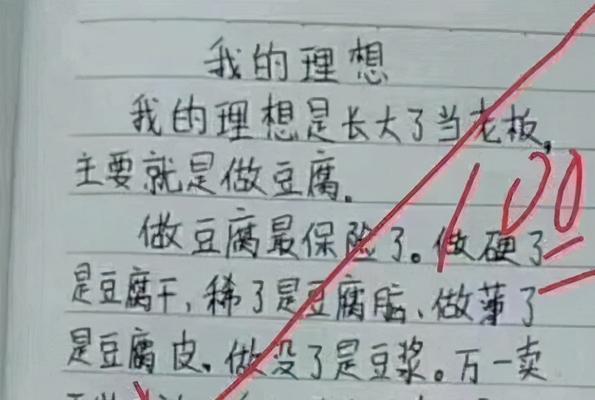 我的理想
我的理想是长大了当老板,
主要就是做豆腐。
做豆腐最保险了。做硬了
是豆腐干,稀了是豆腐脑、做薄了
是豆腐皮、做没了是豆浆。万一卖
100